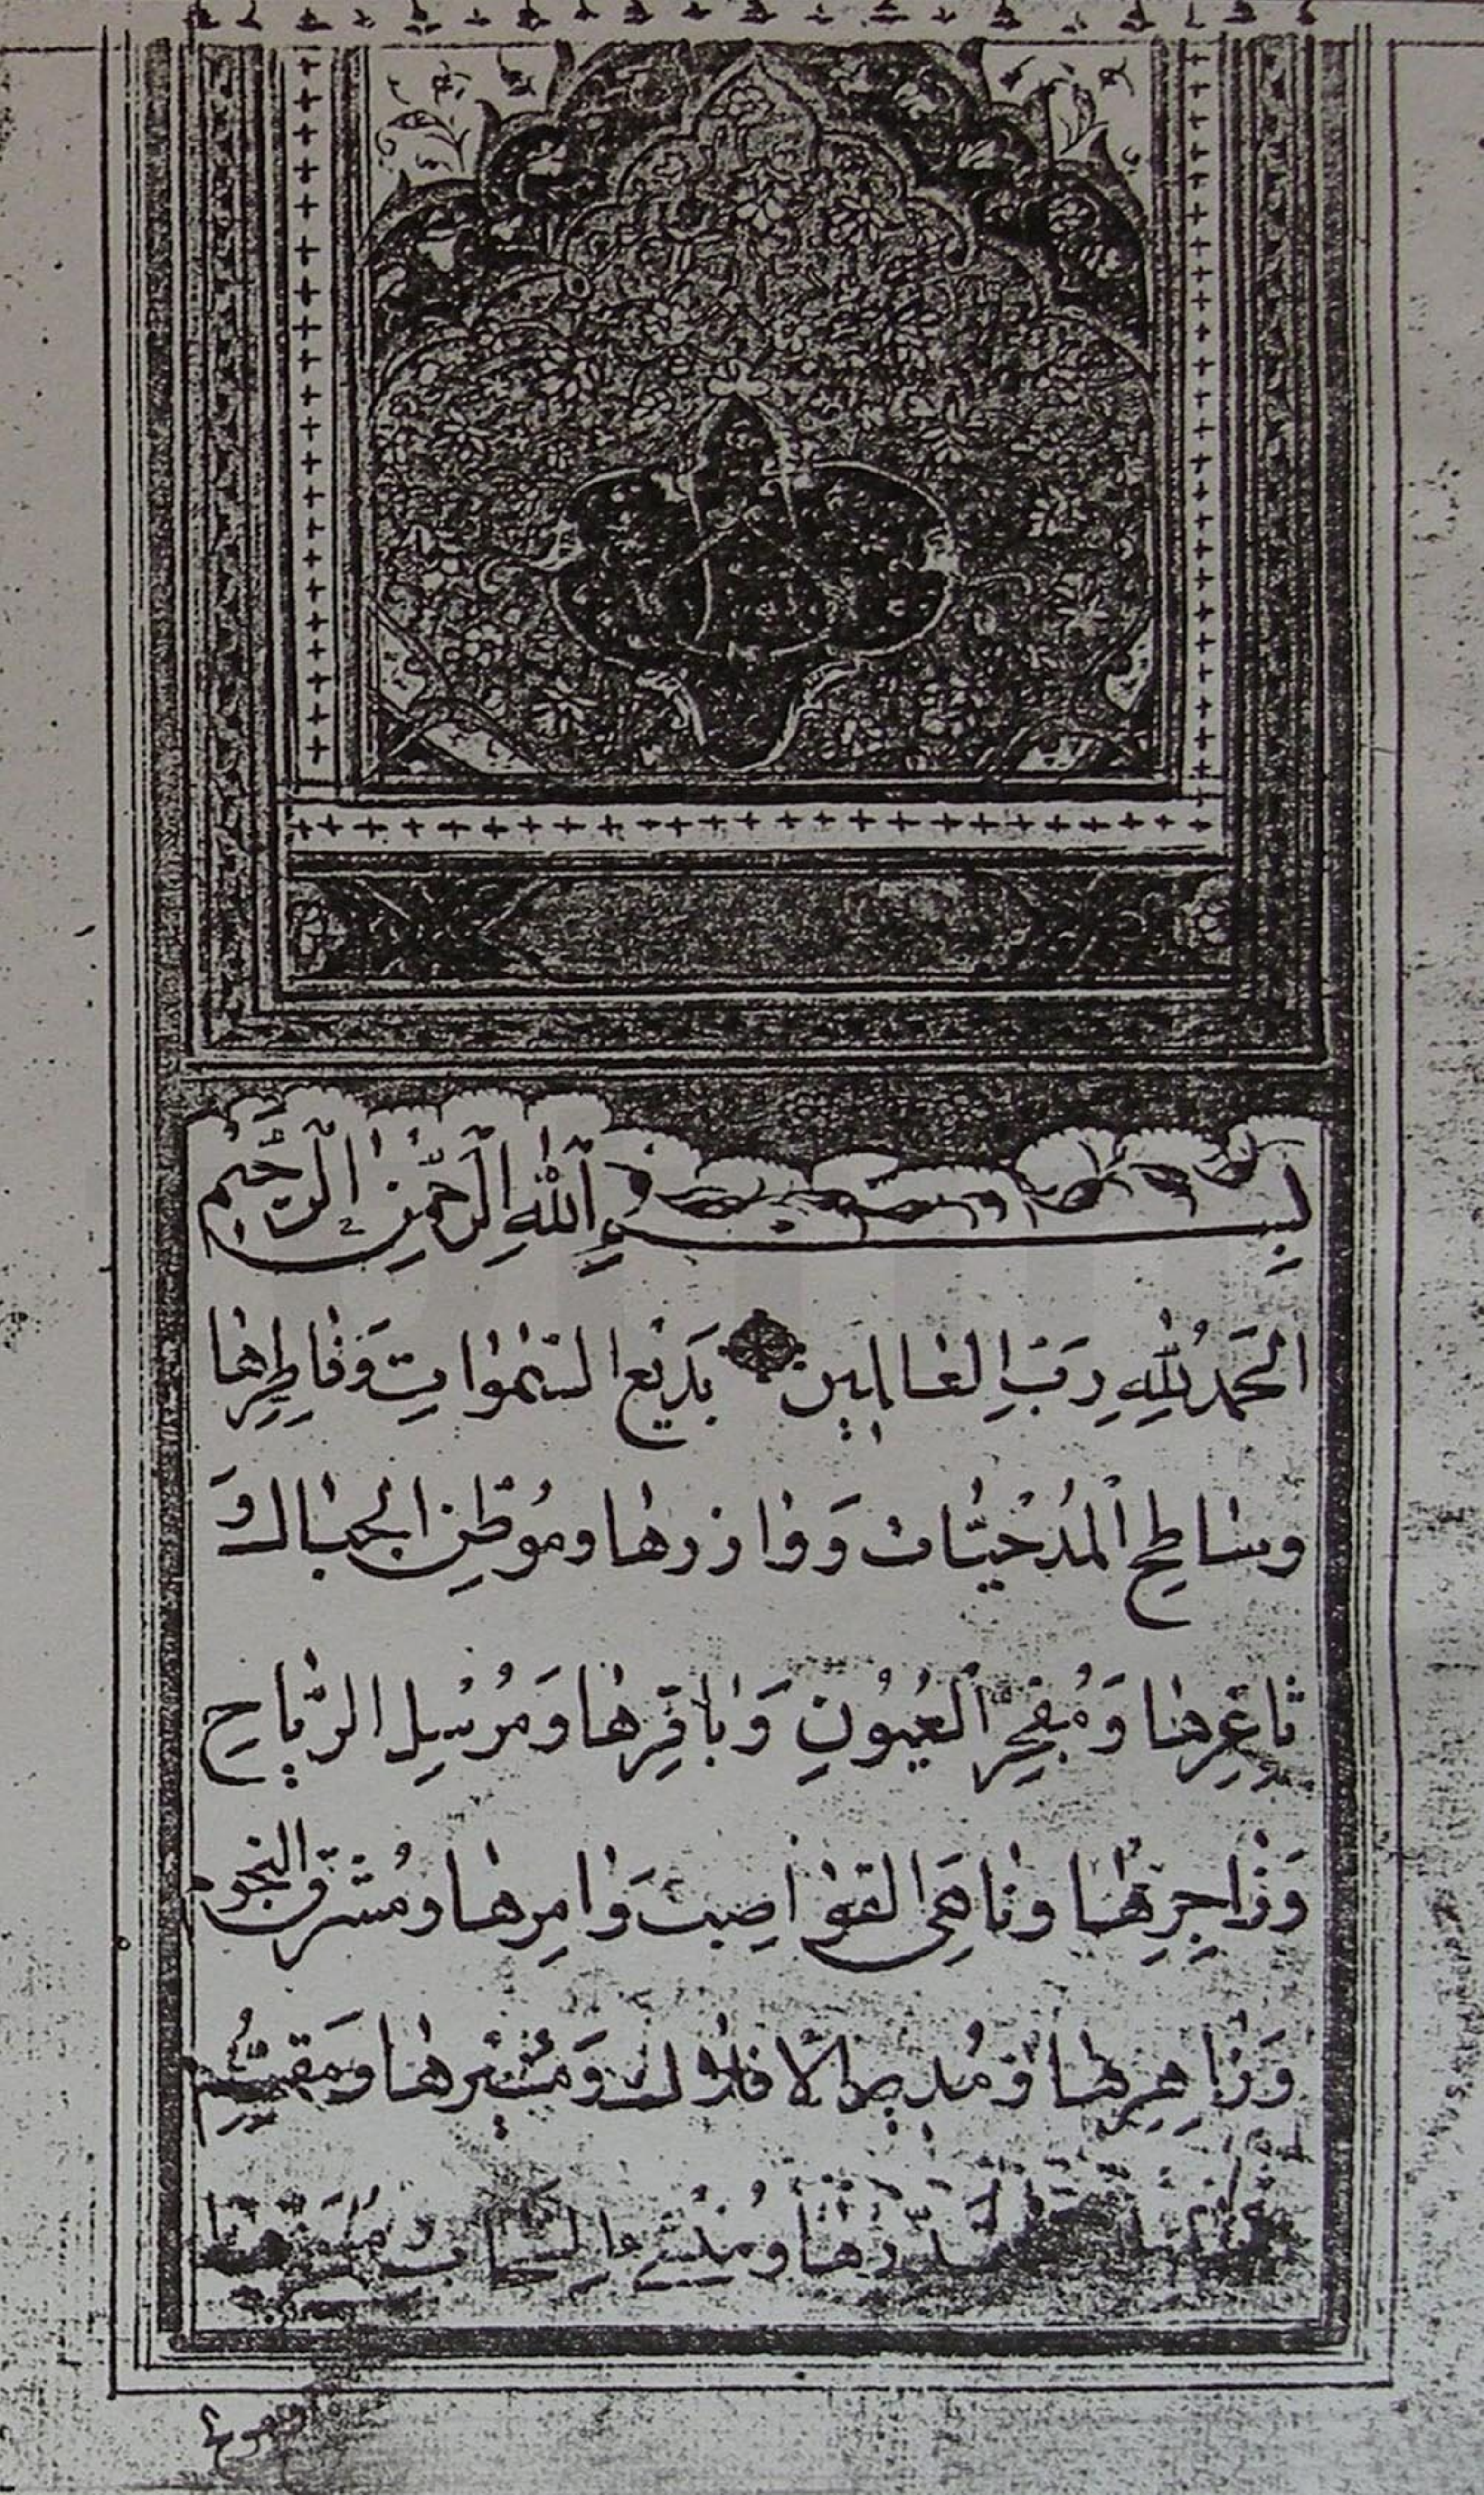 بِسْمِ اللّٰهِ الرَّحْمٰنِ الرَّحِيمِ
اَلْحَمْدُ لِلّٰهِ رَبِّ الْعَالَمِينَ بَدِيعِ السَّمٰوَاتِ وَفَاطِرِهَا
وسَاطِحِ الْمَدْحِيَّاتِ وَوَازِرِهَا ومُوَطِّنِ الْجِبَالِ وَ
ثَاغِرِهَا وَمُفَجِّرِ الْعُيُونِ وَبَاقِرِهَا وَمُرْسِلِ الرِّيَاحِ
وَزَاجِرِهَا ونَاهِى الْقَوَاصِفِ وَاٰمِرِهَا ومُشْرِقِ النجوم
وَزَاهِرِهَا وَمُدِيرِ الْاَفْلَاكِ وَمُسَيِّرِهَا وَمُقَسِّمِ
ومُنْشِئِ السَّحَابِ